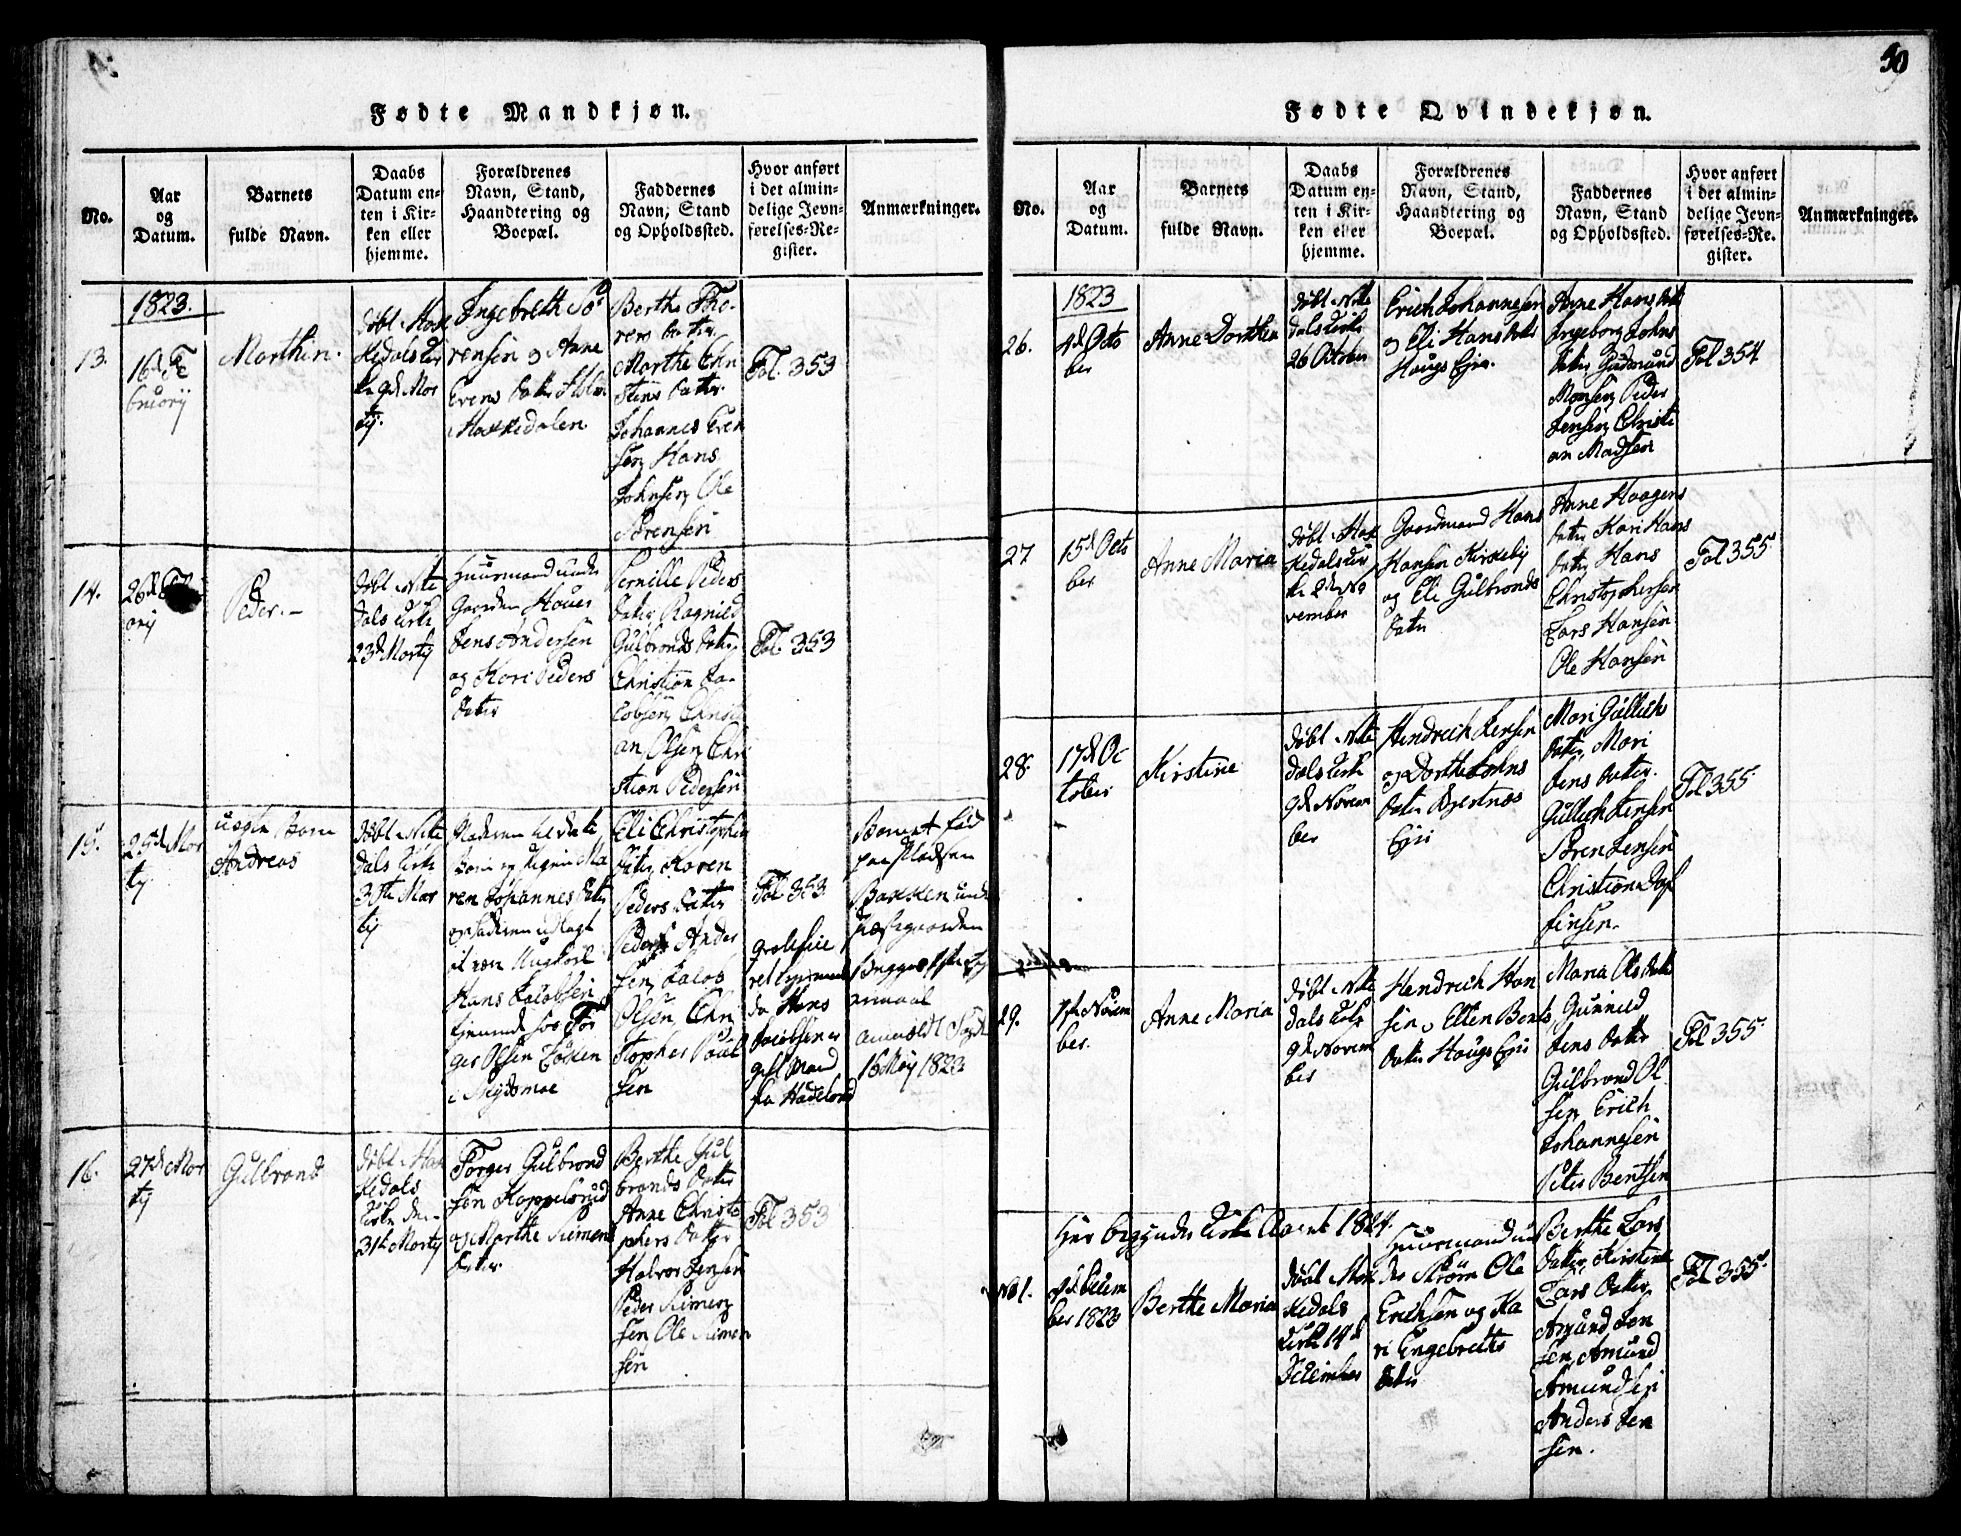 30
Fødte Mandkjøn.
No.
Aar
og
Datum.
Barnets
fulde Navn.
Daabs
Datum en-
ten i Kir-
ken eller
hjemme.
Forældrenes
Navn, Stand,
Haandtering og
Boepæl.
Faddernes
Navn, Stand
og Opholdssted.
Hvor anført
i det almin-
delige Jevn-
førelses-Re-
gister.
Anmærkninger.
1823.
13.
16d Fe
bruarij
Marthin.
døbt i Hak
kedals Kir
ke 9d Mar
tij.
Ingebreth Sø
rensen og Anne
Evens Datter
Hakkedalen
Berthe Tho-
res Datter,
Marthe Chri
stens Datter.
Johannes Even
sen, Hans
Johnsen, Ole
Sørensen
Fol. 353
14.
arij
Peder.
døbt i Nitte
dals Kirke
23d Martij
Huusmand under
Gaarden Hauer
Jens Andersen
og Kari Peders
Datter
Pernille Peders
Datter, Ragnild
Gulbrands Datter,
Christian Ja-
cobsen, Christi
an Olsen, Chri
stian Pedersen
Fol. 353
15.
25d Mar
tij
uægte Barn
Andreas
døbt i Nitte
dals Kirke
30te Mar
tij
ren Johannes Datter
Hans Jacobsen
tjenende hos Tor
ger Olsen
Eli Christophers
Datter, Karen
Peders Datter
Peder Ander
sen, Jacob
Olsen, Chri
stopher Poul
sen
Fol 353
da Hans
Jacobsen er
gift Mand
fra Hadeland
Barnet fød
paa Pladsen
Bakken under
Præstegaarden
anmeldt
16 Maij 1823
16.
27d Mar
tij
Gulbrand
døbt i Hak
kedals
Kirke den
31te Martij
Torger Gulbrand
sen Kappelsrud
og Marthe Simens
Datter.
Berthe Gul
brands Datter
Anne Christo
phers Datter
Halvor Jensen
Peder Simen
sen, Ole Simen
sen
Fol 353
Fødte Qvindekjøn.
No.
Aar
og
Datum.
Barnets
fulde Navn.
Daabs
Datum en-
ten i Kir-
ken eller
hjemme.
Forældrenes
Navn, Stand,
Haandtering og
Boepæl.
Faddernes
Navn, Stand
og Opholdssted.
Hvor anført
i det almin-
delige Jevn-
førelses-Re-
gister.
Anmærkninger.
1823
26.
4d Octo
ber
Anne Dorthea
døbt i Nitte
dals Kirke
26 October
Erich Johannesen
og Eli Hans Datter
Haugs Eje.
Anne Hans Datter
Ingeborg Johns
Datter, Gudmund
Monsen, Peder
Jensen, Christi
an Madsen
Fol 354
27
15d Octo
ber
Anne Maria
døbt i Hak
kedals Kir
ke 2den No
vember
Gaardmand Hans
Hansen Kirkeby
og Eli Gulbrands
Datter
Anne Haagens
Datter, Kari Hans
Datter, Hans
Christophersen
Lars Hansen
Ole Hansen
Fol 355
28.
17d Oc
tober
Kirstine
døbt i Nitte
dals Kirke
9d Novem
ber
Hendrich Jensen
og Dorthe Johns
Datter Bjertnæs
Eje
Mari Gullichs
Datter, Mari
Jens Datter.
Gullich Jensen
Søren Jensen
Christian
Fol 355
29.
1ste Novem
ber.
Anne Maria
døbt i Nitte
dals Kirke
9d Novem
ber
Hendrich Han
sen, Ellen Bents
Datter Haugs Eje
Maria Ols Datter
Gunnild
Jens Datter
Gulbrand Ol
sen, Erich
Johannesen
Peter Bentsen
Fol 355
Her begynder Kirke Aaret 1824.
No 1.
Decem
ber 1823
Berthe Maria
døbt i Hak
kedals
Kirke 14d
December
Huusmand un
der Strøm Ole
Erichsen og Ka
ri Engebrethe
Datter
Berthe Lars
Datter, Kirstine
Lars Datter,
Amund Jon
sen, Amund
Amundsen
Anders Jen
sen.
Fol 355